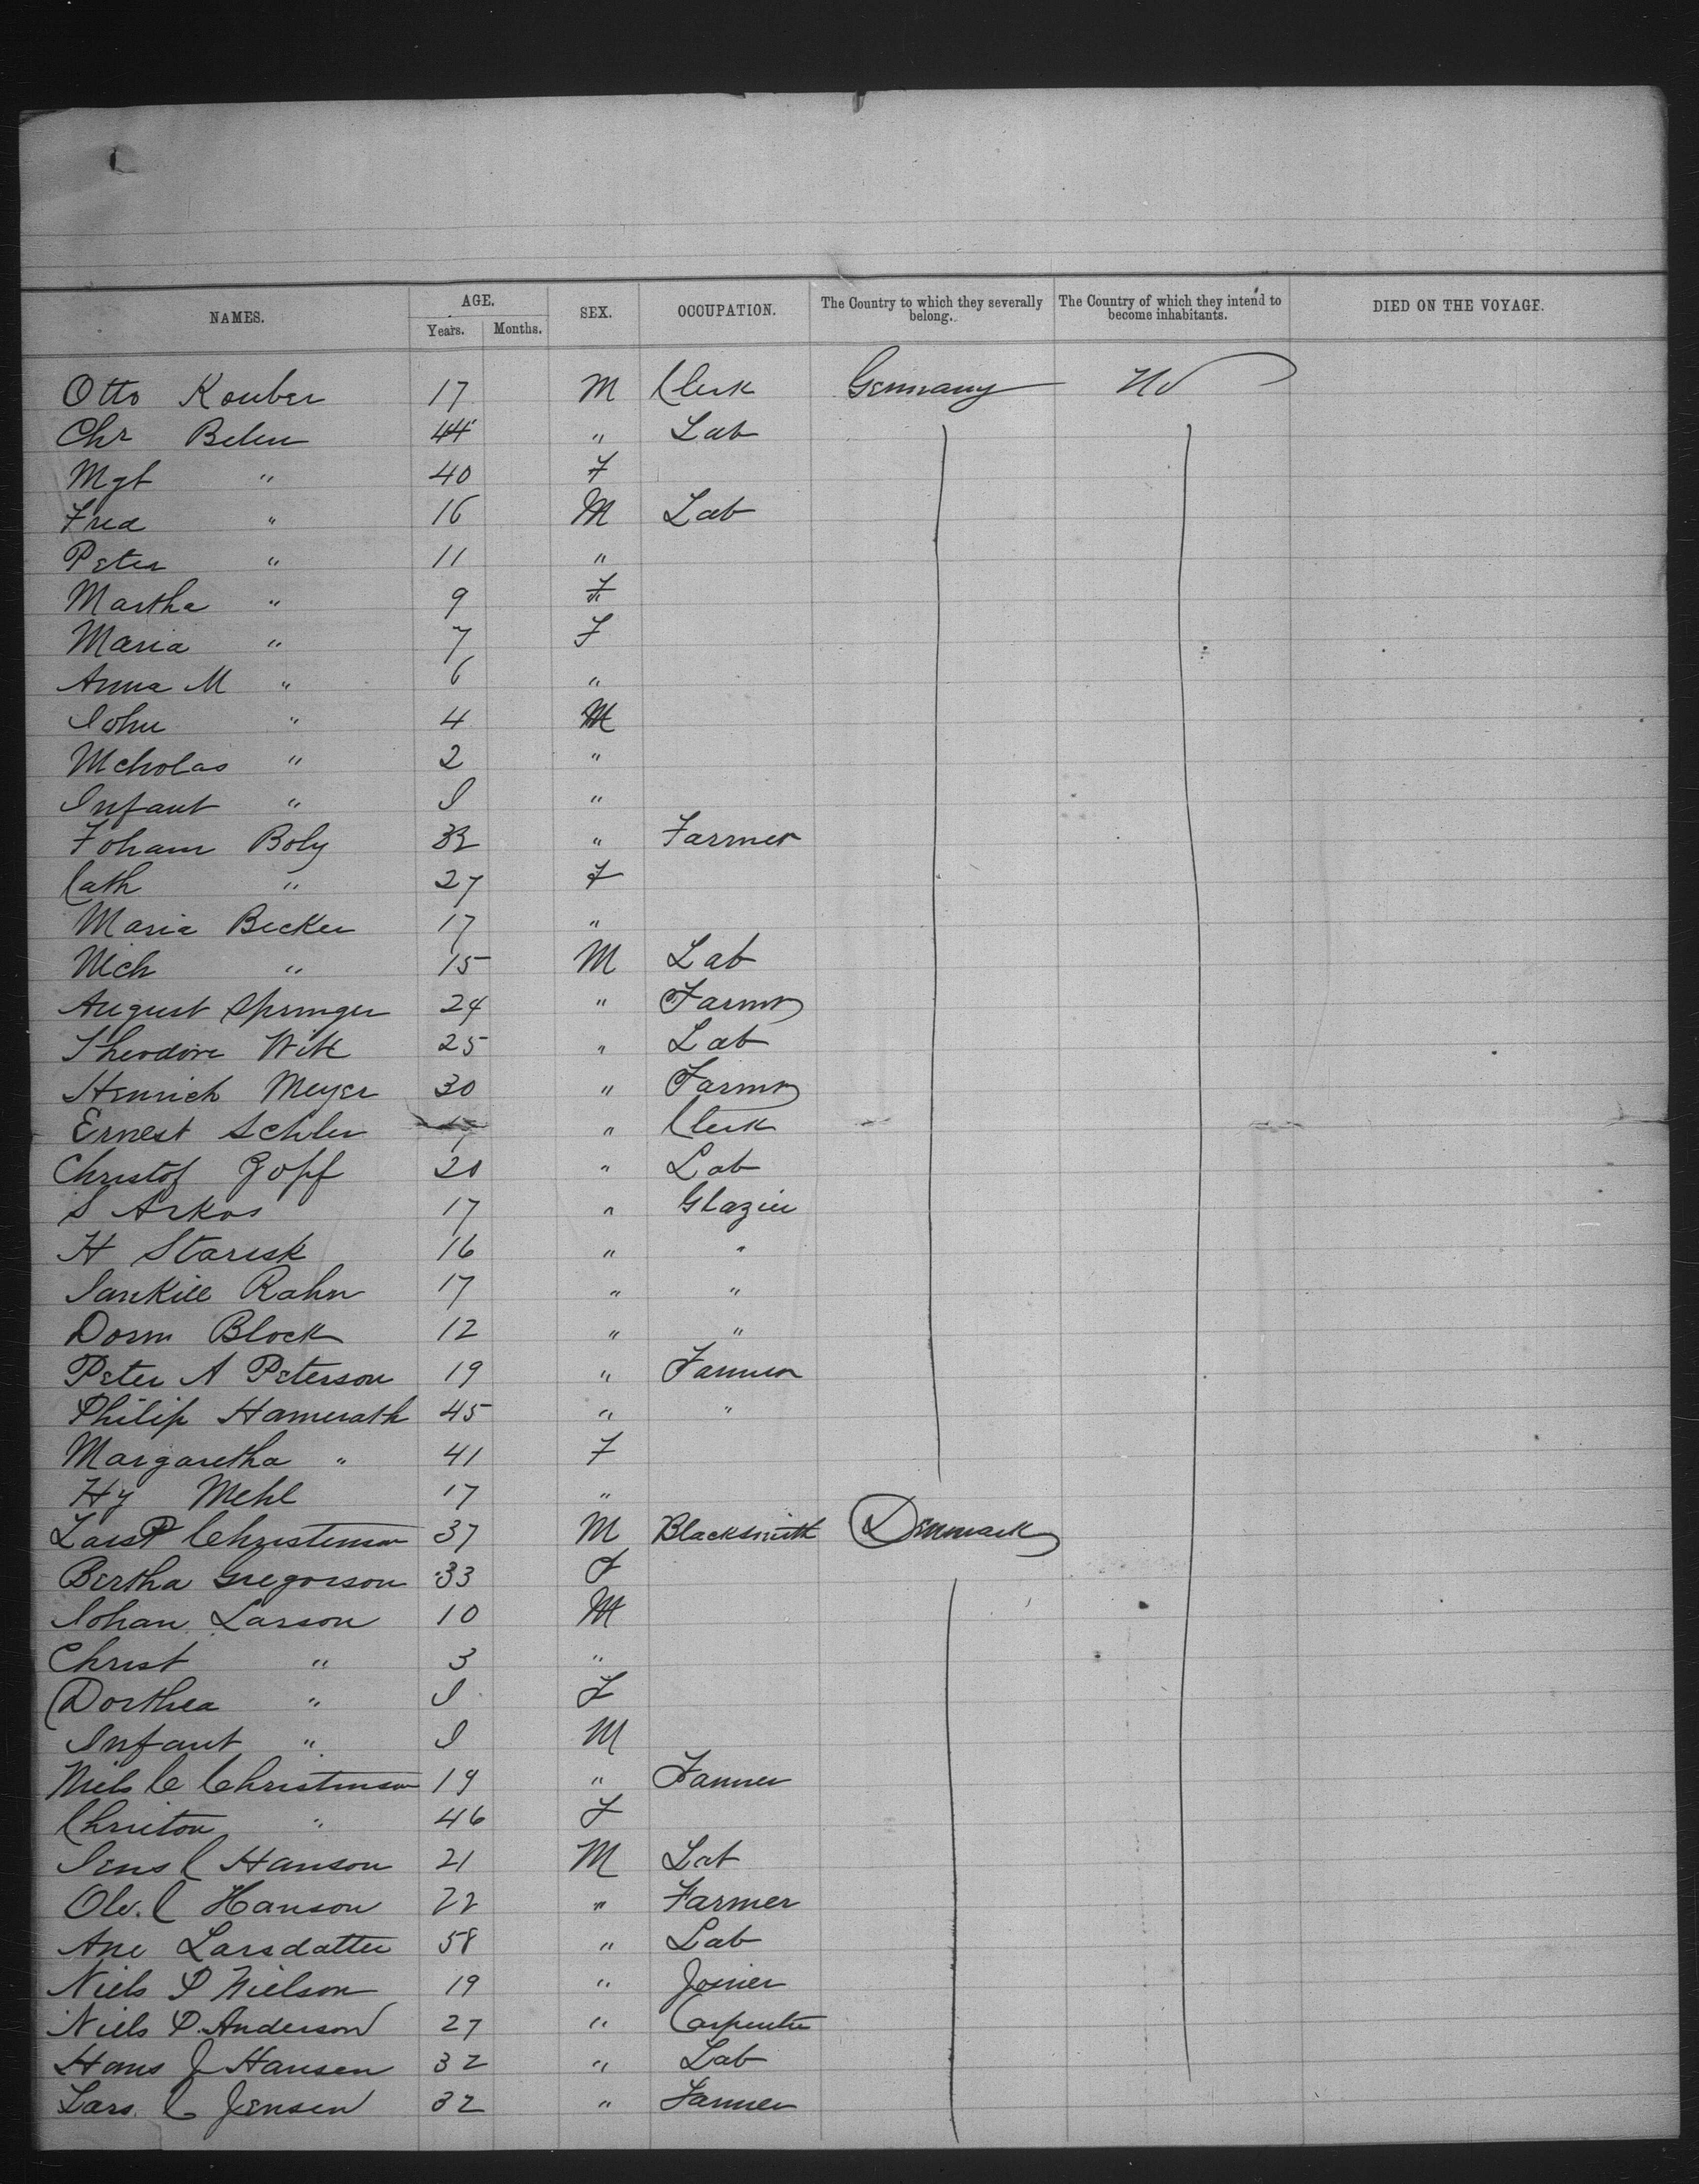 NAMES. AGE. SEX. OCCUPATION. The Country to which they severally belong. The Country of which they intend to become inhabitants. DIED ON THE VOYAGE.
Years. Months.
Otto Kouber 17 M Clerk Germany
Chr Belen 44 " Lab
Mgt " 40 F
Fred " 16 M Lab
Peter " 11 "
Martha " 9 F
Maria " 7 F
Anna M " 6 "
John " 4 M
Nicholas " 2 "
Infant " I "
Foham Boly 32 " Farmer
Cath " 27 F
Maria Becker 17 "
Nich " 15 M Lab
August Springer 24 " Farmer
Theodore Witt 25 " Lab
Henrich Meyer 30 " Farmer
Ernest Schler " Clerk
Christof Gopf 20 " Lab
S Arkos 17 " Glazier
H Starisk 16 " "
Rahn 17 " "
Dorm Block 12 " "
Peter A Peterson 19 " Farmer
Philip Hamerath 45 " "
Margaretha " 41 F
Hy Mehl 17 "
Lars P Christenson 37 M Blacksmith Denmark
Bertha Gregorson 33 F
Johan Larson 10 M
Christ " 3 "
Dorthea " I F
Infant " I M
Niels C Christenson 19 " Farmer
" 46 F
Jens C Hanson 21 M Lab
Ole. C Hanson 22 " Farmer
Ane Larsdatter 58 " Lab
Niels P Nielson 19 " Joiner
Niels P. Anderson 27 " Carpenter
Hans J Hansen 32 " Lab
Lars. C Jensen 32 " Farmer